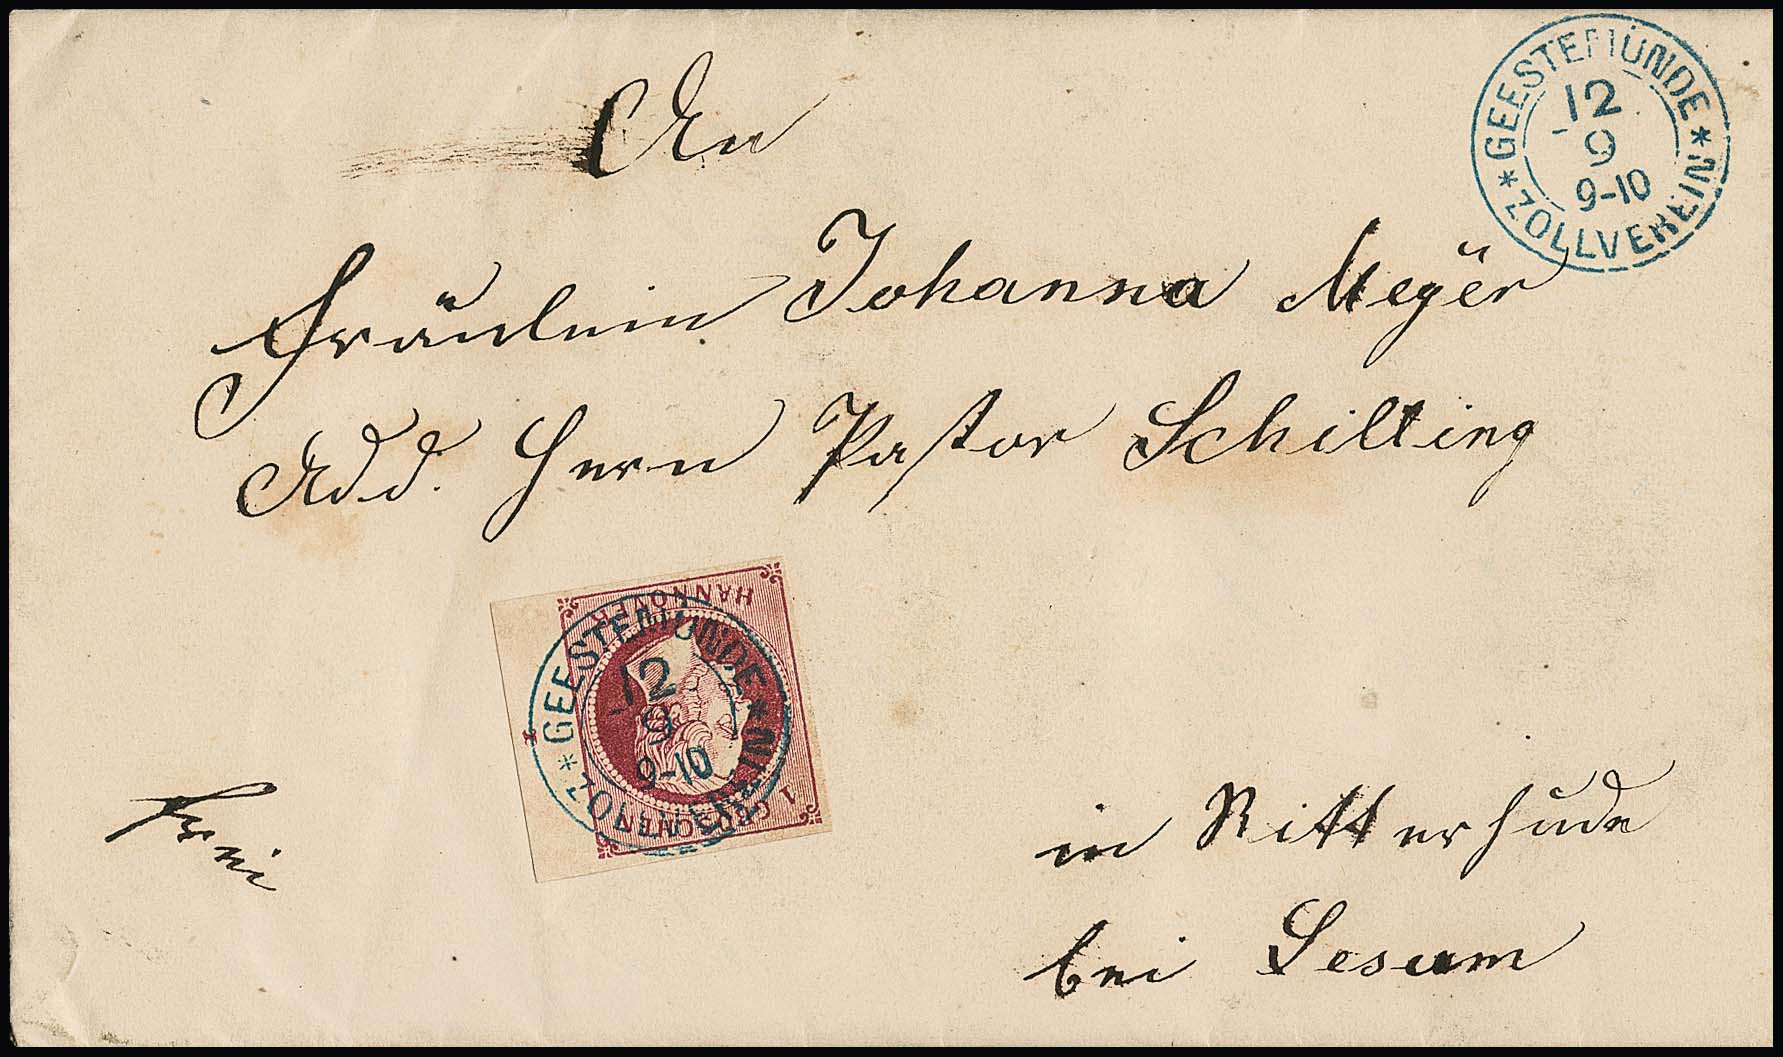 GEESTEMÜNDE
12
9
9-10
* ZOLLVEREIN *
An
Fräulein Johanna Meÿer
Add. Herrn Pastor Schilling
HANNOVER
1 GROSCHEN
GEESTEMÜNDE
12
9
9-10
* ZOLLVEREIN *
Frei
in Ritterhude
bei Lesum